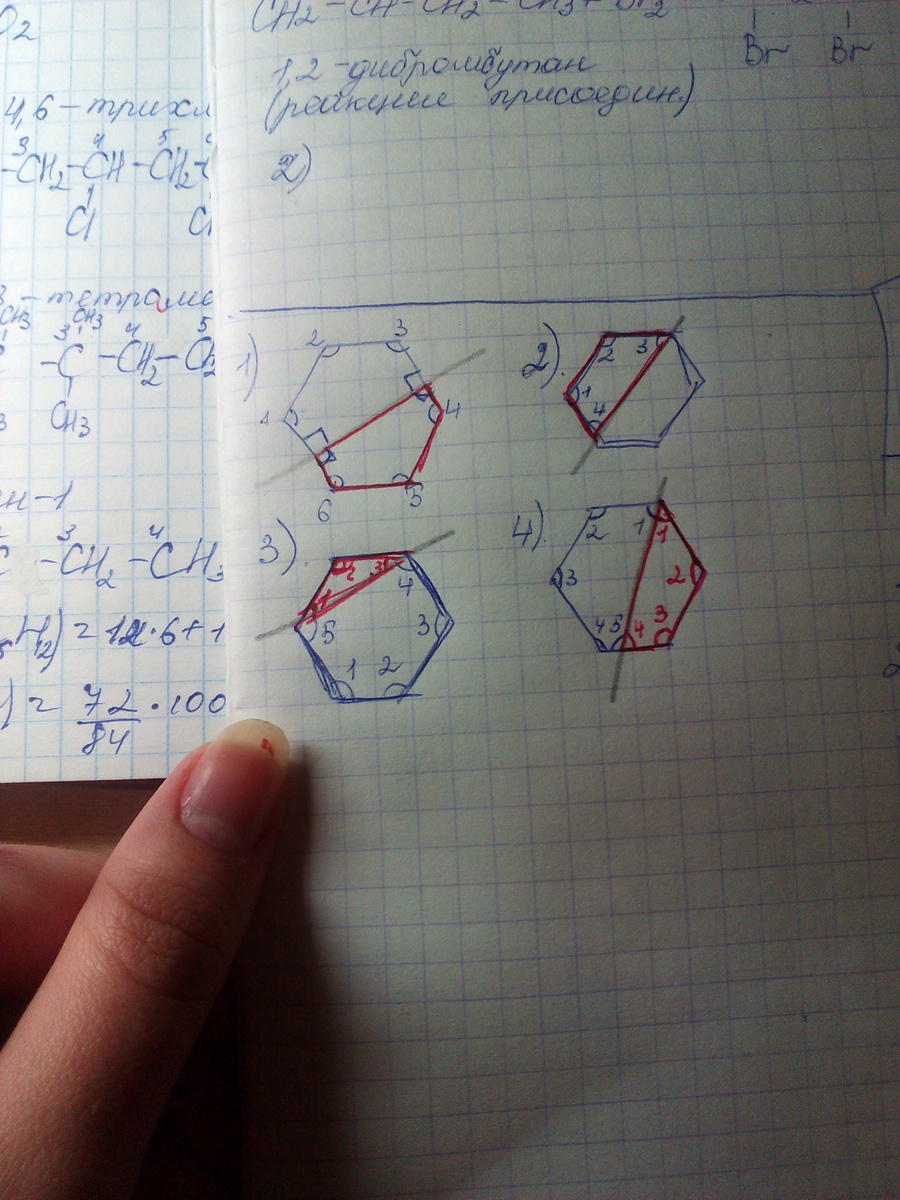 O₂
4,6 – трихл
³CH₂ – ⁴CH – ⁵CH₂
Cl
– тетраме
CH₃ CH₃
³C – ⁴CH₂ – ⁵CH₂
CH₃
ен-1
C – ³CH₂ – ⁴CH₃
H₁₂) = 12·6+1
) = 72/84 · 100
CH₂ – CH – CH₂ – CH₃ + Br₂
Br Br
1,2 – дибромбутан
(реакции присоедин.)
2)
1) 2 3
1 4
6 5
2). 2 3
1
4
3). 2 3 4
1
5 3
1 2
4). 2 1 1
3 2
4 5 4 3